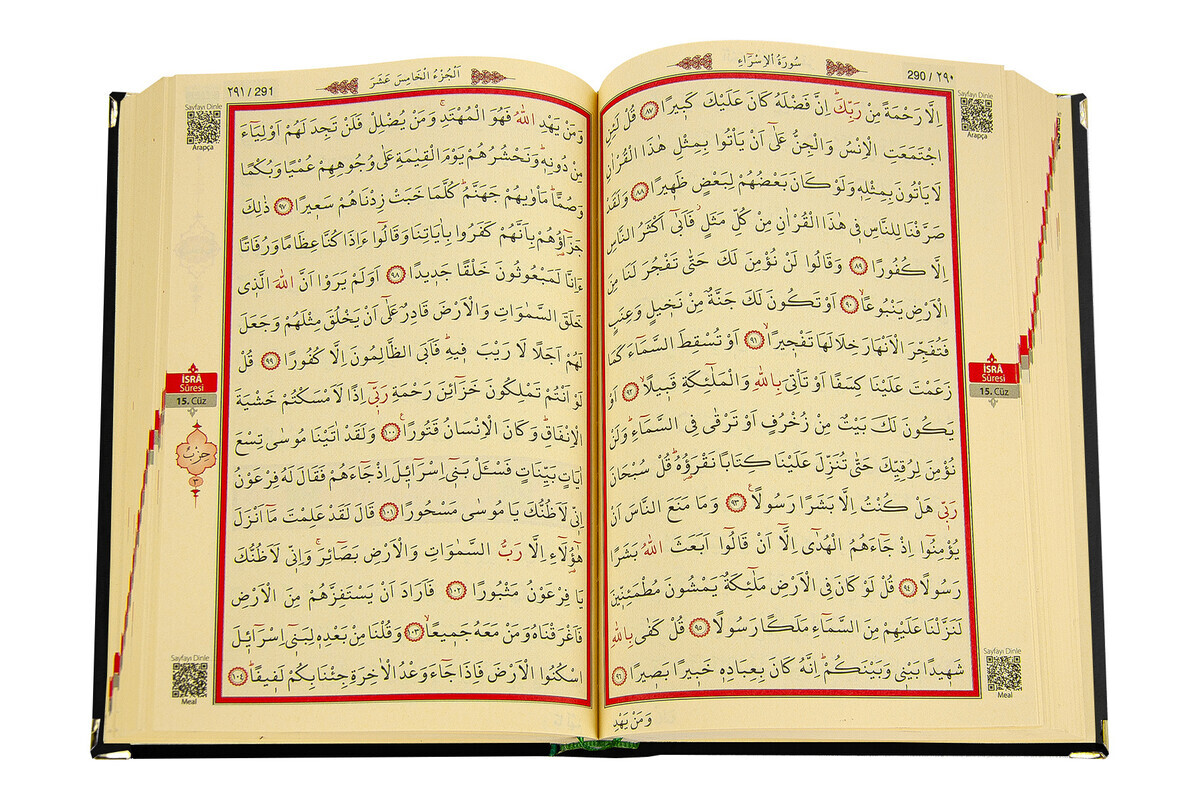 290 / ٢٩٠
سُورَةُ الْاِسْرَٓاءِ
Sayfayı Dinle
Arapça
اِلَّا رَحْمَةً مِنْ رَبِّكَۜ اِنَّ فَضْلَهُ كَانَ عَلَيْكَ كَب۪يرًا ﴿٨٧﴾ قُلْ لَئِنِ
اجْتَمَعَتِ الْاِنْسُ وَالْجِنُّ عَلٰٓى اَنْ يَأْتُوا بِمِثْلِ هٰذَا الْقُرْاٰنِ
لَا يَأْتُونَ بِمِثْلِه۪ وَلَوْ كَانَ بَعْضُهُمْ لِبَعْضٍ ظَه۪يرًا ﴿٨٨﴾ وَلَقَدْ
صَرَّفْنَا لِلنَّاسِ ف۪ي هٰذَا الْقُرْاٰنِ مِنْ كُلِّ مَثَلٍۘ فَاَبٰٓى اَكْثَرُ النَّاسِ
اِلَّا كُفُورًا ﴿٨٩﴾ وَقَالُوا لَنْ نُؤْمِنَ لَكَ حَتّٰى تَفْجُرَ لَنَا مِنَ
الْاَرْضِ يَنْبُوعًاۙ ﴿٩٠﴾ اَوْ تَكُونَ لَكَ جَنَّةٌ مِنْ نَخ۪يلٍ وَعِنَبٍ
فَتُفَجِّرَ الْاَنْهَارَ خِلَالَهَا تَفْج۪يرًاۙ ﴿٩١﴾ اَوْ تُسْقِطَ السَّمَٓاءَ كَمَا
زَعَمْتَ عَلَيْنَا كِسَفًا اَوْ تَأْتِيَ بِاللّٰهِ وَالْمَلٰٓئِكَةِ قَب۪يلًاۙ ﴿٩٢﴾ اَوْ
يَكُونَ لَكَ بَيْتٌ مِنْ زُخْرُفٍ اَوْ تَرْقٰى فِي السَّمَٓاءِۜ وَلَنْ
نُؤْمِنَ لِرُقِيِّكَ حَتّٰى تُنَزِّلَ عَلَيْنَا كِتَابًا نَقْرَؤُ۬هُۜ قُلْ سُبْحَانَ
رَبّ۪ي هَلْ كُنْتُ اِلَّا بَشَرًا رَسُولًا۟ ﴿٩٣﴾ وَمَا مَنَعَ النَّاسَ اَنْ
يُؤْمِنُٓوا اِذْ جَٓاءَهُمُ الْهُدٰٓى اِلَّٓا اَنْ قَالُٓوا اَبَعَثَ اللّٰهُ بَشَرًا
رَسُولًا ﴿٩٤﴾ قُلْ لَوْ كَانَ فِي الْاَرْضِ مَلٰٓئِكَةٌ يَمْشُونَ مُطْمَئِنّ۪ينَ
لَنَزَّلْنَا عَلَيْهِمْ مِنَ السَّمَٓاءِ مَلَكًا رَسُولًا ﴿٩٥﴾ قُلْ كَفٰى بِاللّٰهِ
شَه۪يدًا بَيْن۪ي وَبَيْنَكُمْۜ اِنَّهُ كَانَ بِعِبَادِه۪ خَب۪يرًا بَص۪يرًا ﴿٩٦﴾
وَمَنْ يَهْدِ
İSRÂ
Sûresi
15. Cüz
Sayfayı Dinle
Meal
اَلْجُزْءُ الْخَامِسَ عَشَرَ
٢٩١ / 291
Sayfayı Dinle
Arapça
وَمَنْ يَهْدِ اللّٰهُ فَهُوَ الْمُهْتَدِۚ وَمَنْ يُضْلِلْ فَلَنْ تَجِدَ لَهُمْ اَوْلِيَٓاءَ
مِنْ دُونِه۪ۜ وَنَحْشُرُهُمْ يَوْمَ الْقِيٰمَةِ عَلٰى وُجُوهِهِمْ عُمْيًا وَبُكْمًا
وَصُمًّاۜ مَأْوٰيهُمْ جَهَنَّمُۜ كُلَّمَا خَبَتْ زِدْنَاهُمْ سَع۪يرًا ﴿٩٧﴾ ذٰلِكَ
جَزَٓاؤُ۬هُمْ بِاَنَّهُمْ كَفَرُوا بِاٰيَاتِنَا وَقَالُٓوا ءَاِذَا كُنَّا عِظَامًا وَرُفَاتًا
ءَاِنَّا لَمَبْعُوثُونَ خَلْقًا جَد۪يدًا ﴿٩٨﴾ اَوَلَمْ يَرَوْا اَنَّ اللّٰهَ الَّذ۪ي
خَلَقَ السَّمٰوَاتِ وَالْاَرْضَ قَادِرٌ عَلٰٓى اَنْ يَخْلُقَ مِثْلَهُمْ وَجَعَلَ
لَهُمْ اَجَلًا لَا رَيْبَ ف۪يهِۜ فَاَبَى الظَّالِمُونَ اِلَّا كُفُورًا ﴿٩٩﴾ قُلْ
لَوْ اَنْتُمْ تَمْلِكُونَ خَزَٓائِنَ رَحْمَةِ رَبّ۪ٓي اِذًا لَاَمْسَكْتُمْ خَشْيَةَ
الْاِنْفَاقِۜ وَكَانَ الْاِنْسَانُ قَتُورًا۟ ﴿١٠٠﴾ وَلَقَدْ اٰتَيْنَا مُوسٰى تِسْعَ
اٰيَاتٍ بَيِّنَاتٍ فَسْـَٔلْ بَن۪ٓي اِسْرَٓاء۪يلَ اِذْ جَٓاءَهُمْ فَقَالَ لَهُ فِرْعَوْنُ
اِنّ۪ي لَاَظُنُّكَ يَا مُوسٰى مَسْحُورًا ﴿١٠١﴾ قَالَ لَقَدْ عَلِمْتَ مَٓا اَنْزَلَ
هٰٓؤُ۬لَٓاءِ اِلَّا رَبُّ السَّمٰوَاتِ وَالْاَرْضِ بَصَٓائِرَۚ وَاِنّ۪ي لَاَظُنُّكَ
يَا فِرْعَوْنُ مَثْبُورًا ﴿١٠٢﴾ فَاَرَادَ اَنْ يَسْتَفِزَّهُمْ مِنَ الْاَرْضِ
فَاَغْرَقْنَاهُ وَمَنْ مَعَهُ جَم۪يعًاۙ ﴿١٠٣﴾ وَقُلْنَا مِنْ بَعْدِه۪ لِبَن۪ٓي اِسْرَٓاء۪يلَ
اسْكُنُوا الْاَرْضَ فَاِذَا جَٓاءَ وَعْدُ الْاٰخِرَةِ جِئْنَا بِكُمْ لَف۪يفًاۜ ﴿١٠٤﴾
İSRÂ
Sûresi
15. Cüz
حزب
٣
Sayfayı Dinle
Meal